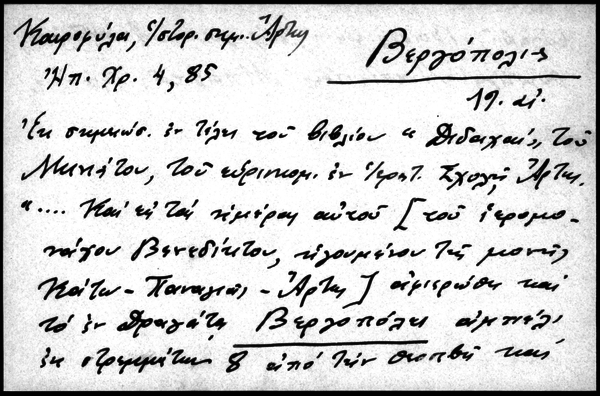 Καιρομύλα, Ἱστορ. σημ. Ἄρτης
Ἠπ. Χρ. 4, 85
Βεργόπολις
19. αἰ.
Ἐκ σημειώσ. ἐν τέλει τοῦ βιβλίου "Διδαχαί", τοῦ
Μηνιάτου, τοῦ εὑρισκομ. ἐν Ἱερατ. Σχολῇ Ἄρτης.
".... Καί εἰς τάς ἡμέρας αὐτοῦ [τοῦ ἱερομο-
νάχου Βενεδίκτου, ἡγουμένου τῆς μονῆς
Κάτω - Παναγιᾶς - Ἄρτης] ἀφιερώθη καί
τό ἐν Βεργοπόλει ἀμπέλι
ἐκ στρεμμάτων 8 ἀπό τήν καί